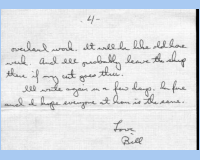 4/-
overhaul work. It will be like old home
week. And I'll probably leave the ship
there if my set goes thru.
I'll write again in a few days. Im fine
and I hope everyone at home is the same.
Love
Bill